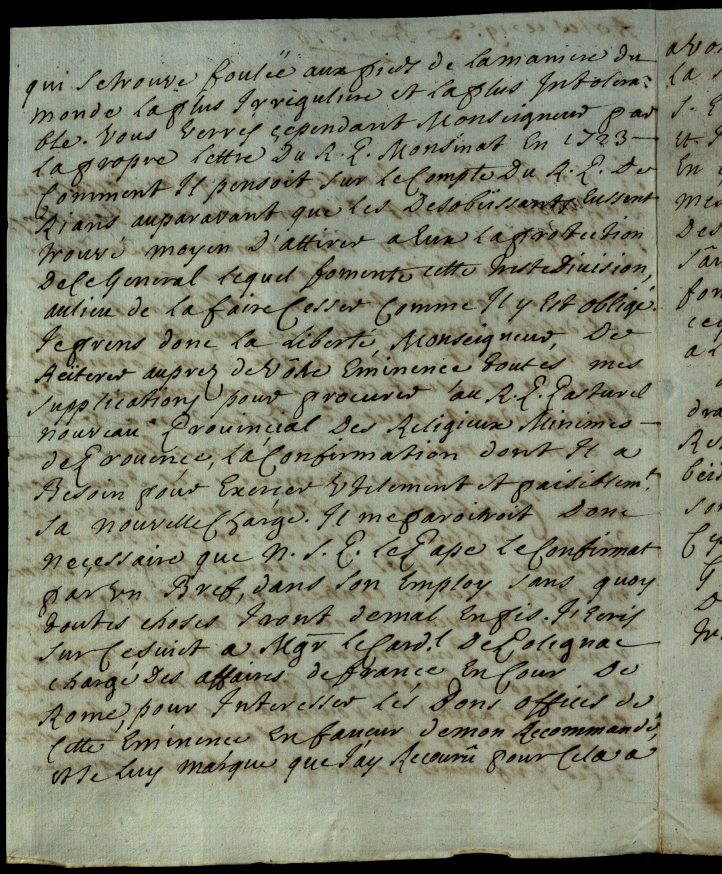 qui setrouve foulée aux pieds de lamaniere du
monde laplus Irreguliere et laplus Intolera-
ble. Vous Verrés cependant Monseigneur par
lapropre lettre Du R. P. Monsinat En 1723 —
Comment Il pensoit sur leCompte Du R. P. De
Rians auparavant que les Desobëissants Eussent
trouvé moyen D'attirer a Eux laprotection
DeCeGeneral lequel fomente cette triste Division,
aulieu de lafaireCesser Comme Il y Est obligé.
Jeprens donc la Liberté, Monseigneur, De
Reïterer auprez deVôtre Eminence toutes mes
supplications pour procurer au R. P. Pasturel
nouveau Provincial Des Religieux Minimes —
deProvence, laConfirmation dont Il a
Besoin pour Exercer Utilement et paisiblemt.
sa nouvelleCharge. Il meparoitroit Donc
necessaire que N. S. P. lePape leConfirmat
parUn Bref, dans son Employ sans quoy
toutes choses Iront demal Enpis. J'Ecris
surCesujet a Mgr leCard.l DePolignac
chargé Des affaires defrance EnCour De
Rome, pour Interesser les Bons offices de
Cette Eminence Enfaveur demon Recommandé,
et Je Luy marque que J'ay Recouru pourCela a